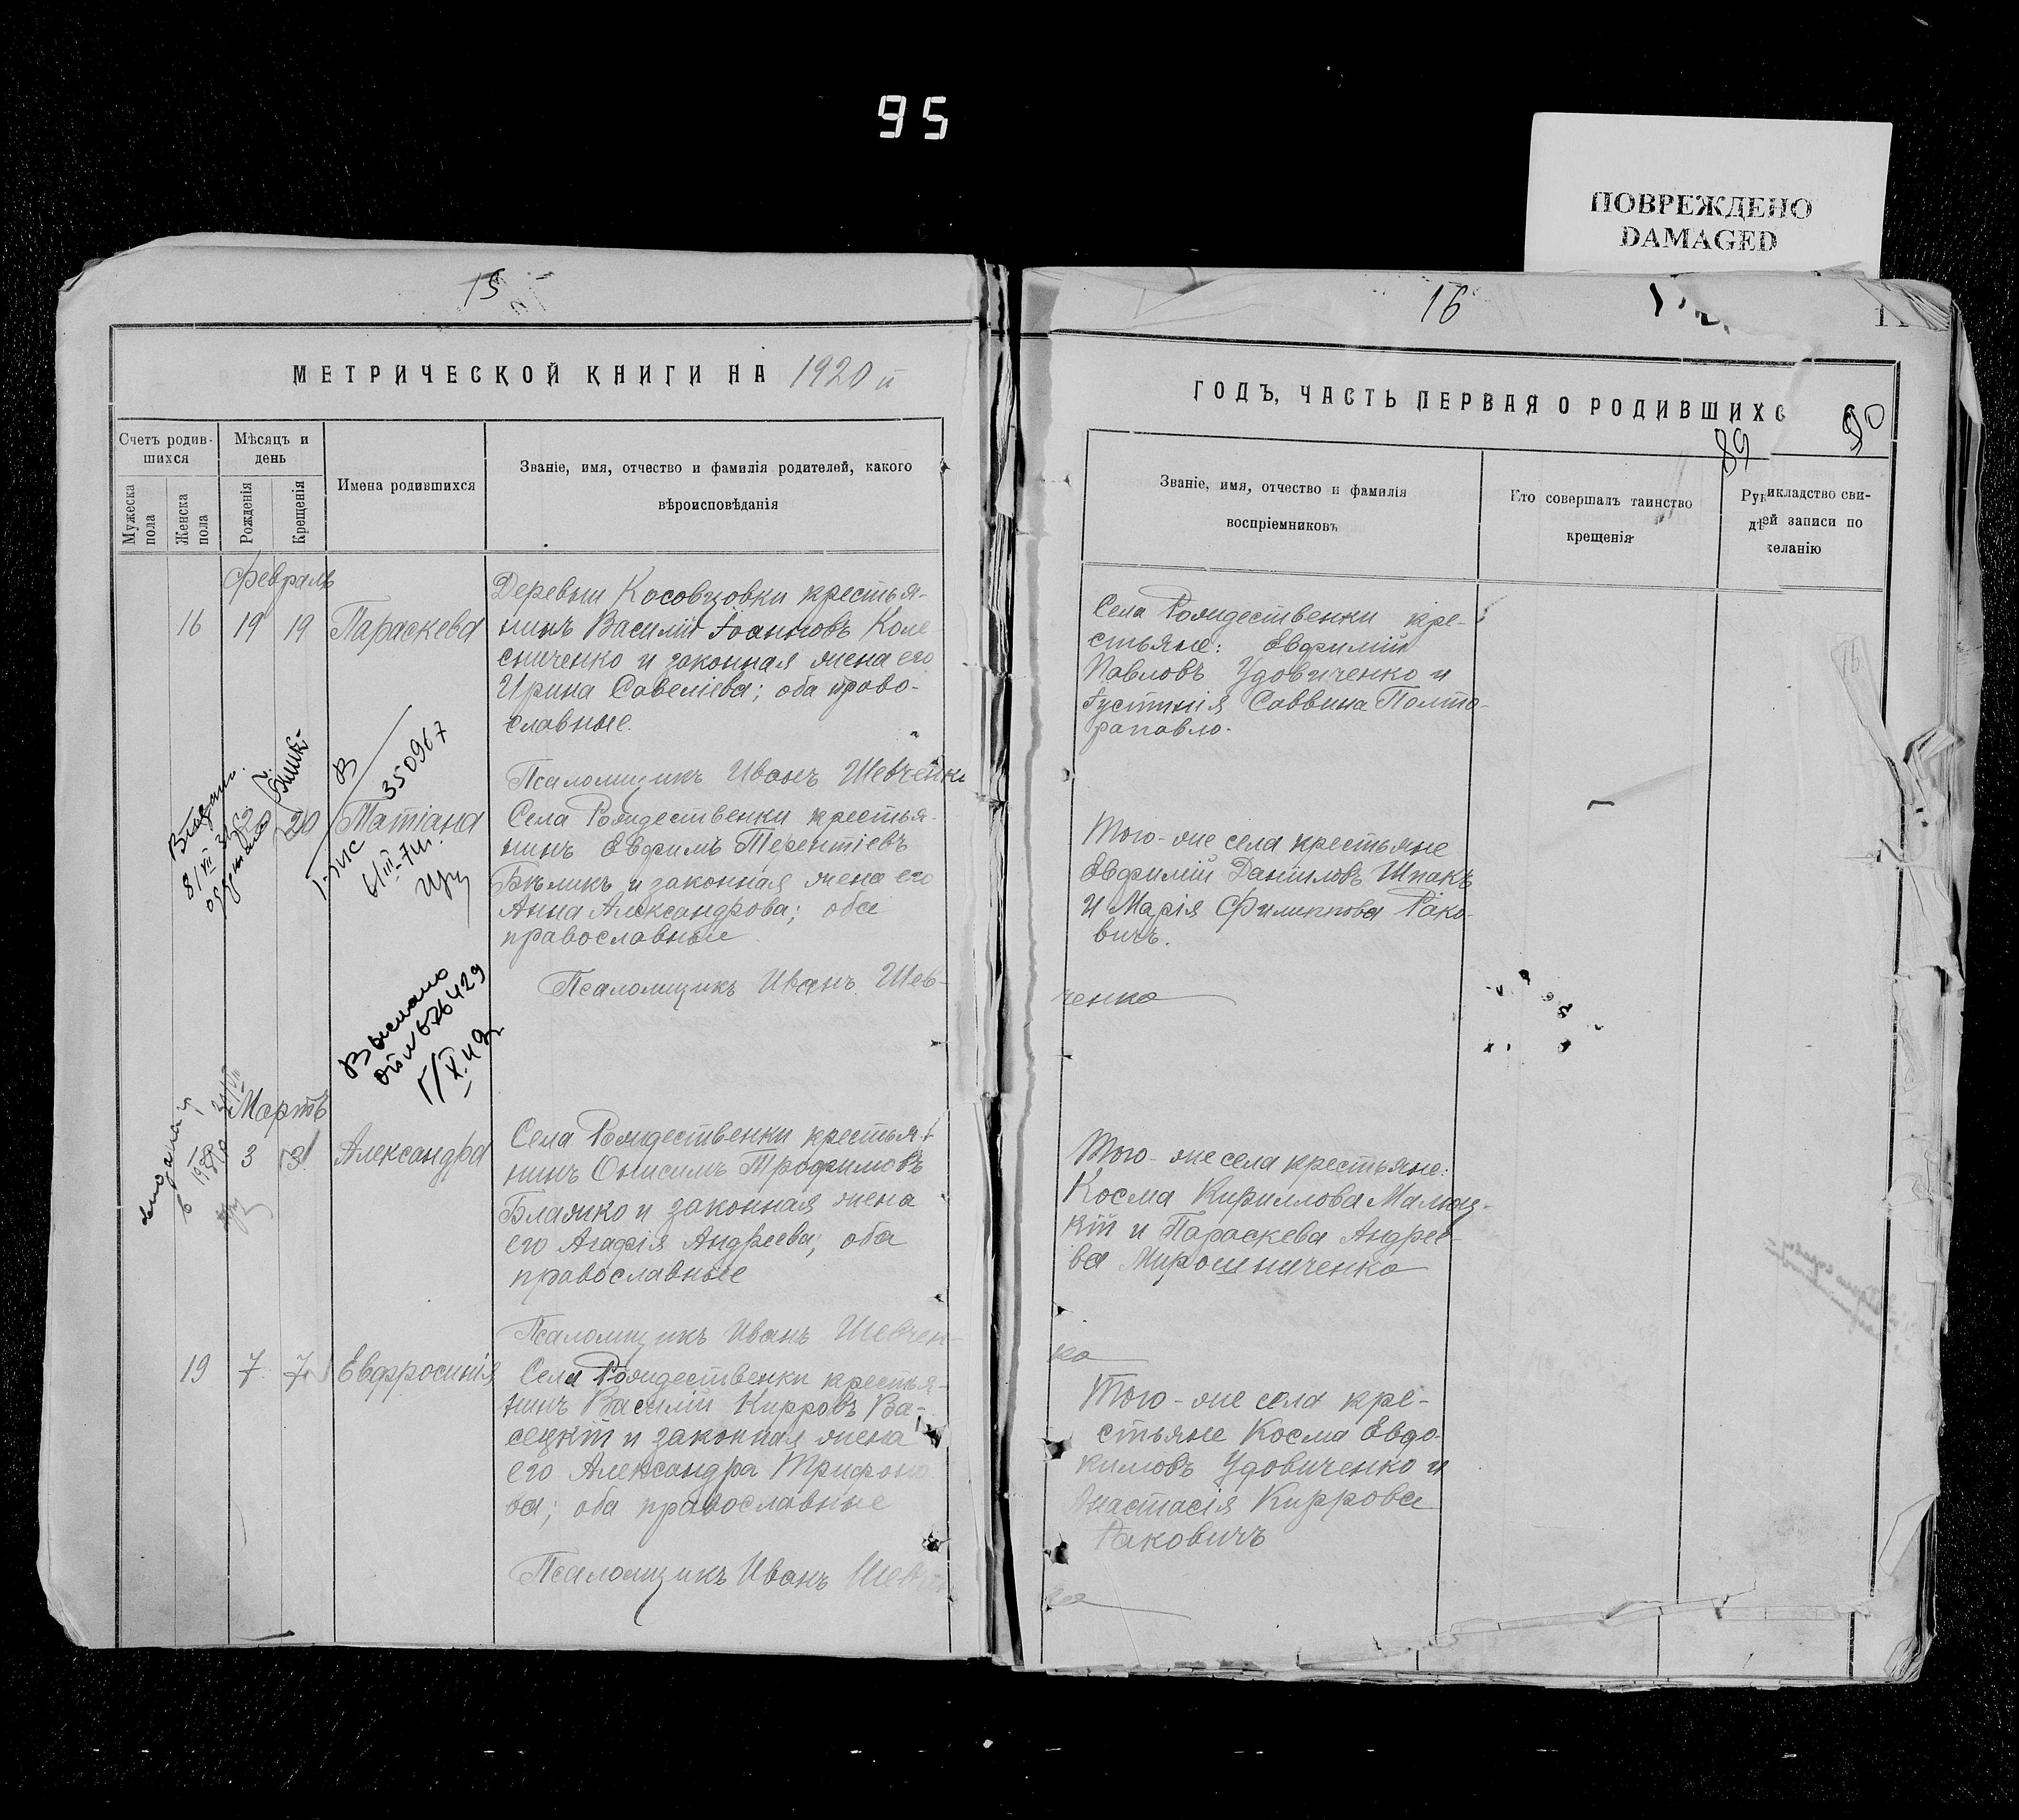 95
ПОВРЕЖДЕНО
DAMAGED
15
МЕТРИЧЕСКОЙ КНИГИ НА 1920 й
Счетъ родив-
шихся
Мужеска
пола
Женска
пола
Мѣсяцъ и
день
Рожденія
Крещенія
Имена родившихся
Званіе, имя, отчество и фамилія родителей, какого
вѣроисповѣданія
Февраль
16 19 19 Параскева
Деревни Косовцовки крестья-
нинъ Василій Іоанновъ Коле
сниченко и законная жена его
Ирина Савеліева; оба право-
славные.
Псаломщикъ Иванъ Шевченко
20 Татіана
Села Рождественки крестья-
нинъ Евфимъ Терентіевъ
Бѣликъ и законная жена его
Анна Александрова; оба
православные
Псаломщикъ Иванъ Шев-
350967
Выслано
676429
Мартъ
3 3 Александра
Села Рождественки крестья-
нинъ Онисимъ Трофимовъ
Блажко и законная жена
его Агафія Андреева; оба
православные
Псаломщикъ Иванъ Шевчен-
19 7 7 Евфросинія
Села Рождественки крестья-
нинъ Василій Кирровъ Ва-
сецкій и законная жена
его Александра Трифоно
ва; оба православные
Псаломщикъ Иванъ Шевчен
16
ГОДЪ, ЧАСТЬ ПЕРВАЯ О РОДИВШИХС
89
90
Званіе, имя, отчество и фамилія
воспріемниковъ
Кто совершалъ таинство
крещенія
Рук икладство сви-
дѣ ей записи по
желанію
Села Рождественки кре-
стьяне: Евфимій
Павловъ Удовиченко и
Іустинія Саввина Полто-
рапавло.
Того-же села крестьяне
Евфимій Даниловъ Шпакъ
и Марія Филиппова Рако-
вичъ.
ченко
Того-же села крестьяне:
Косма Кириллова Малюц-
кій и Параскева Андрее-
ва Мирошниченко
ко
Того-же села кре-
стьяне Косма Евдо-
кимовъ Удовиченко и
Анастасія Киррова
Раковичъ
ко